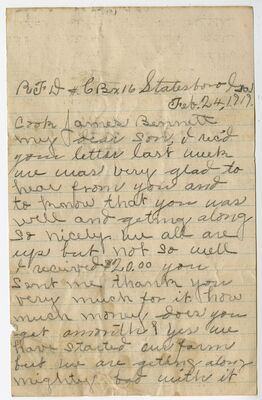 R F D 4 C Bx 16 Statesboro Ga
Feb. 24, 1919.
Cook James Bennett
my dear Son, I rec'd
your letter last week
we was very glad to
hear from you and
to know that you was
well and getting along
So nicely we all are
ups but not So well
I received $20.00 you
Sent me thank you
very much for it how
much money does you
get a month? yes we
have started our farm
but we are geting along
mighty bad with it